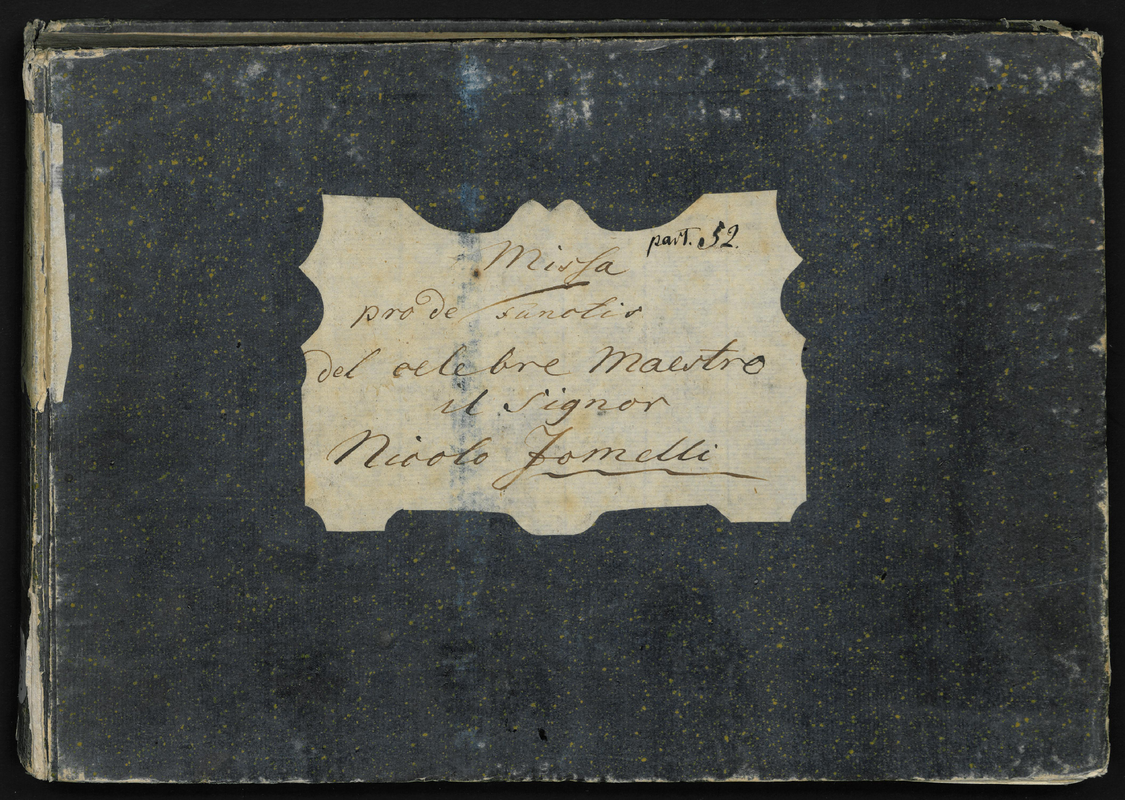 part. 52.
Missa
pro defunctis
del celebre Maestro
il Signor
Nicolo Jomelli